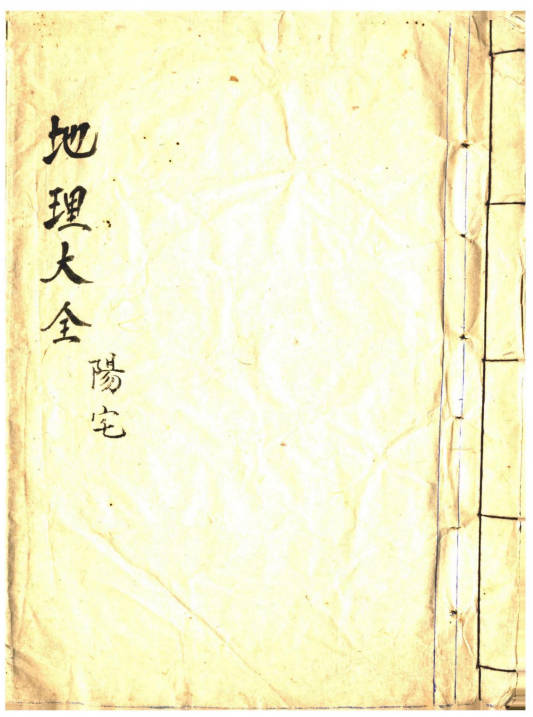 地理大全
陽宅